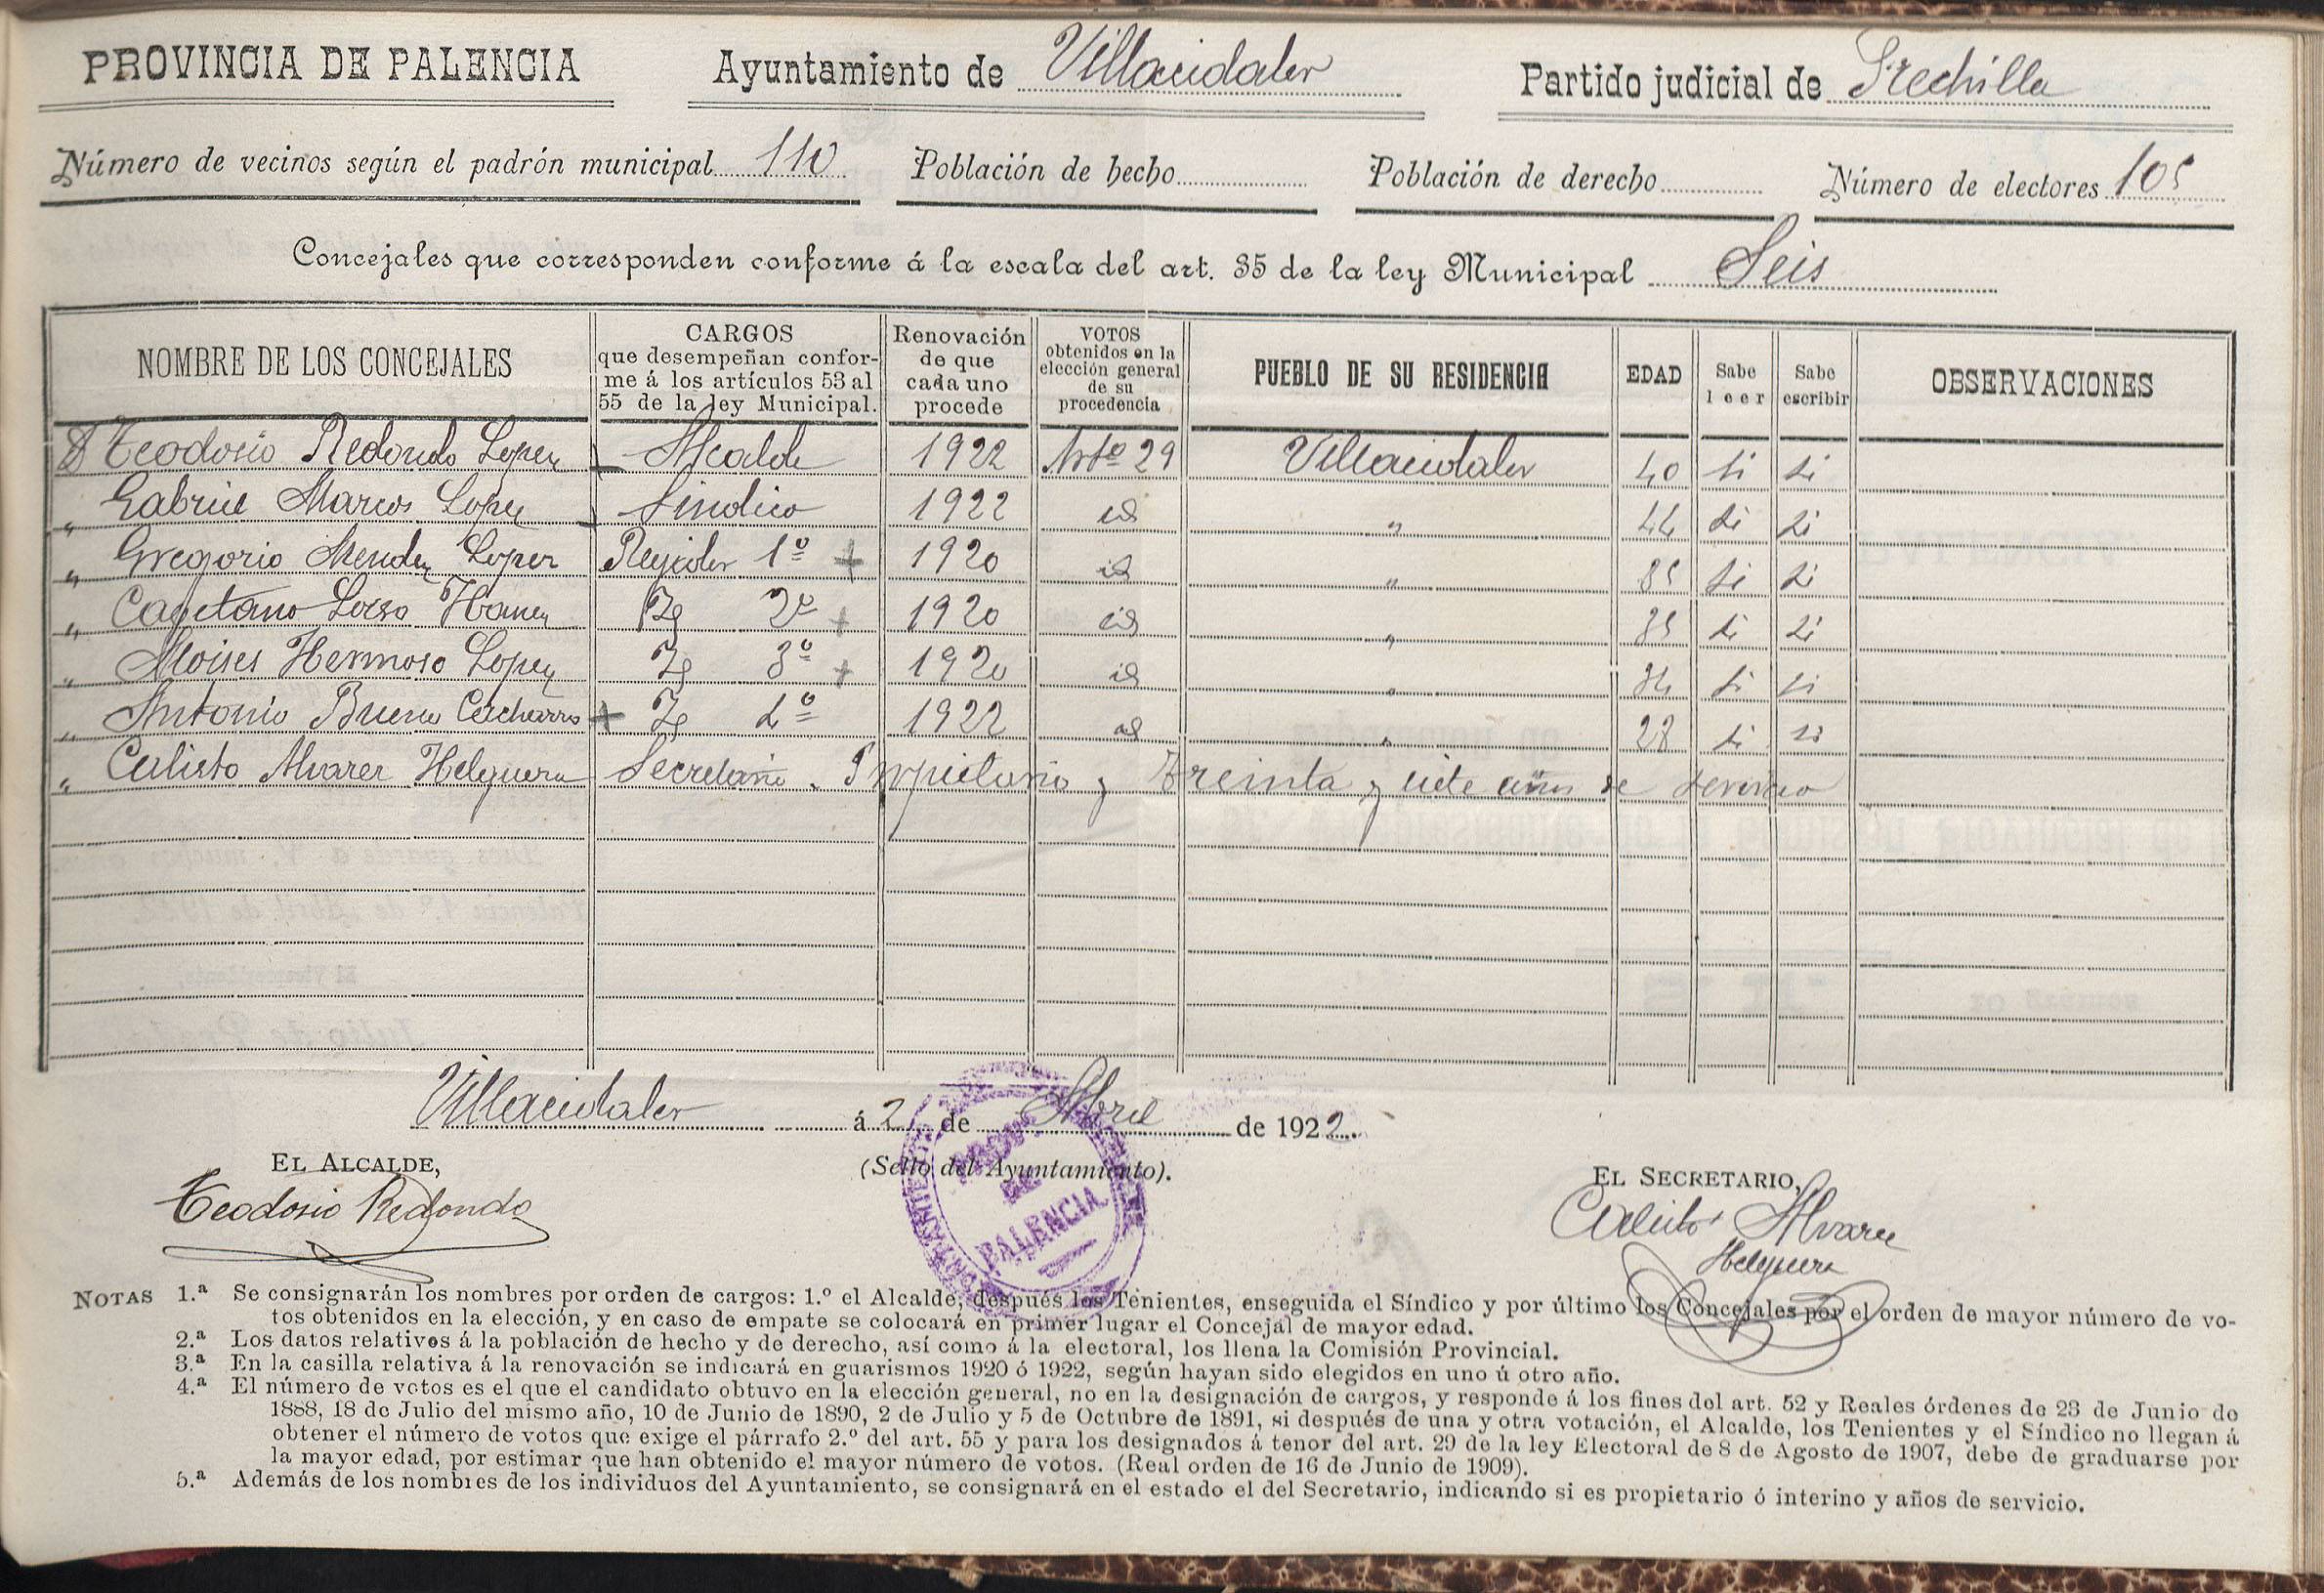 PROVINCIA DE PALENCIA Ayuntamiento de Villacidaler Partido judicial de Frechilla
Número de vecinos según el padrón municipal 110 Población de hecho Población de derecho Número de electores 105
Concejales que corresponden conforme á la escala del art. 35 de la ley Municipal Seis
NOMBRE DE LOS CONCEJALES
CARGOS
que desempeñan confor-
me á los artículos 53 al
55 de la ley Municipal.
Renovación
de que
cada uno
procede
VOTOS
obtenidos en la
elección general
de su
procedencia
PUEBLO DE SU RESIDENCIA
EDAD
Sabe
leer
Sabe
escribir
OBSERVACIONES
D Teodosio Redondo Lopez Alcalde 1922 Arto 29 Villacidaler 40 si si
" Gabriel Marcos Lopez Sindico 1922 id " 44 si si
" Gregorio Mendez Lopez Regidor 1º + 1920 id " 35 si si
" Cayetano Ibanez Id 2º + 1920 id " 35 si si
" Moises Hermoso Lopez Id 3º + 1920 id " 34 si si
" Antonio Bueno Cacharro + Id 4º 1922 id " 28 si si
" Calisto Alvarez Helguera Secretario. Propietario y Treinta y siete años de servicio
Villacidaler á 2 de Abril de 1922.
EL ALCALDE,
(Sello del Ayuntamiento).
EL SECRETARIO,
Teodosio Redondo
Calisto Alvarez
Helguera
PALENCIA
NOTAS 1.ª Se consignarán los nombres por orden de cargos: 1.º el Alcalde, después los Tenientes, enseguida el Síndico y por último los Concejales por el orden de mayor número de vo-
tos obtenidos en la elección, y en caso de empate se colocará en primer lugar el Concejal de mayor edad.
2.ª Los datos relativos á la población de hecho y de derecho, así como á la electoral, los llena la Comisión Provincial.
3.ª En la casilla relativa á la renovación se indicará en guarismos 1920 ó 1922, según hayan sido elegidos en uno ú otro año.
4.ª El número de votos es el que el candidato obtuvo en la elección general, no en la designación de cargos, y responde á los fines del art. 52 y Reales órdenes de 23 de Junio de
1888, 18 de Julio del mismo año, 10 de Junio de 1890, 2 de Julio y 5 de Octubre de 1891, si después de una y otra votación, el Alcalde, los Tenientes y el Síndico no llegan á
obtener el número de votos que exige el párrafo 2.º del art. 55 y para los designados á tenor del art. 29 de la ley Electoral de 8 de Agosto de 1907, debe de graduarse por
la mayor edad, por estimar que han obtenido el mayor número de votos. (Real orden de 16 de Junio de 1909).
5.ª Además de los nombres de los individuos del Ayuntamiento, se consignará en el estado el del Secretario, indicando si es propietario ó interino y años de servicio.